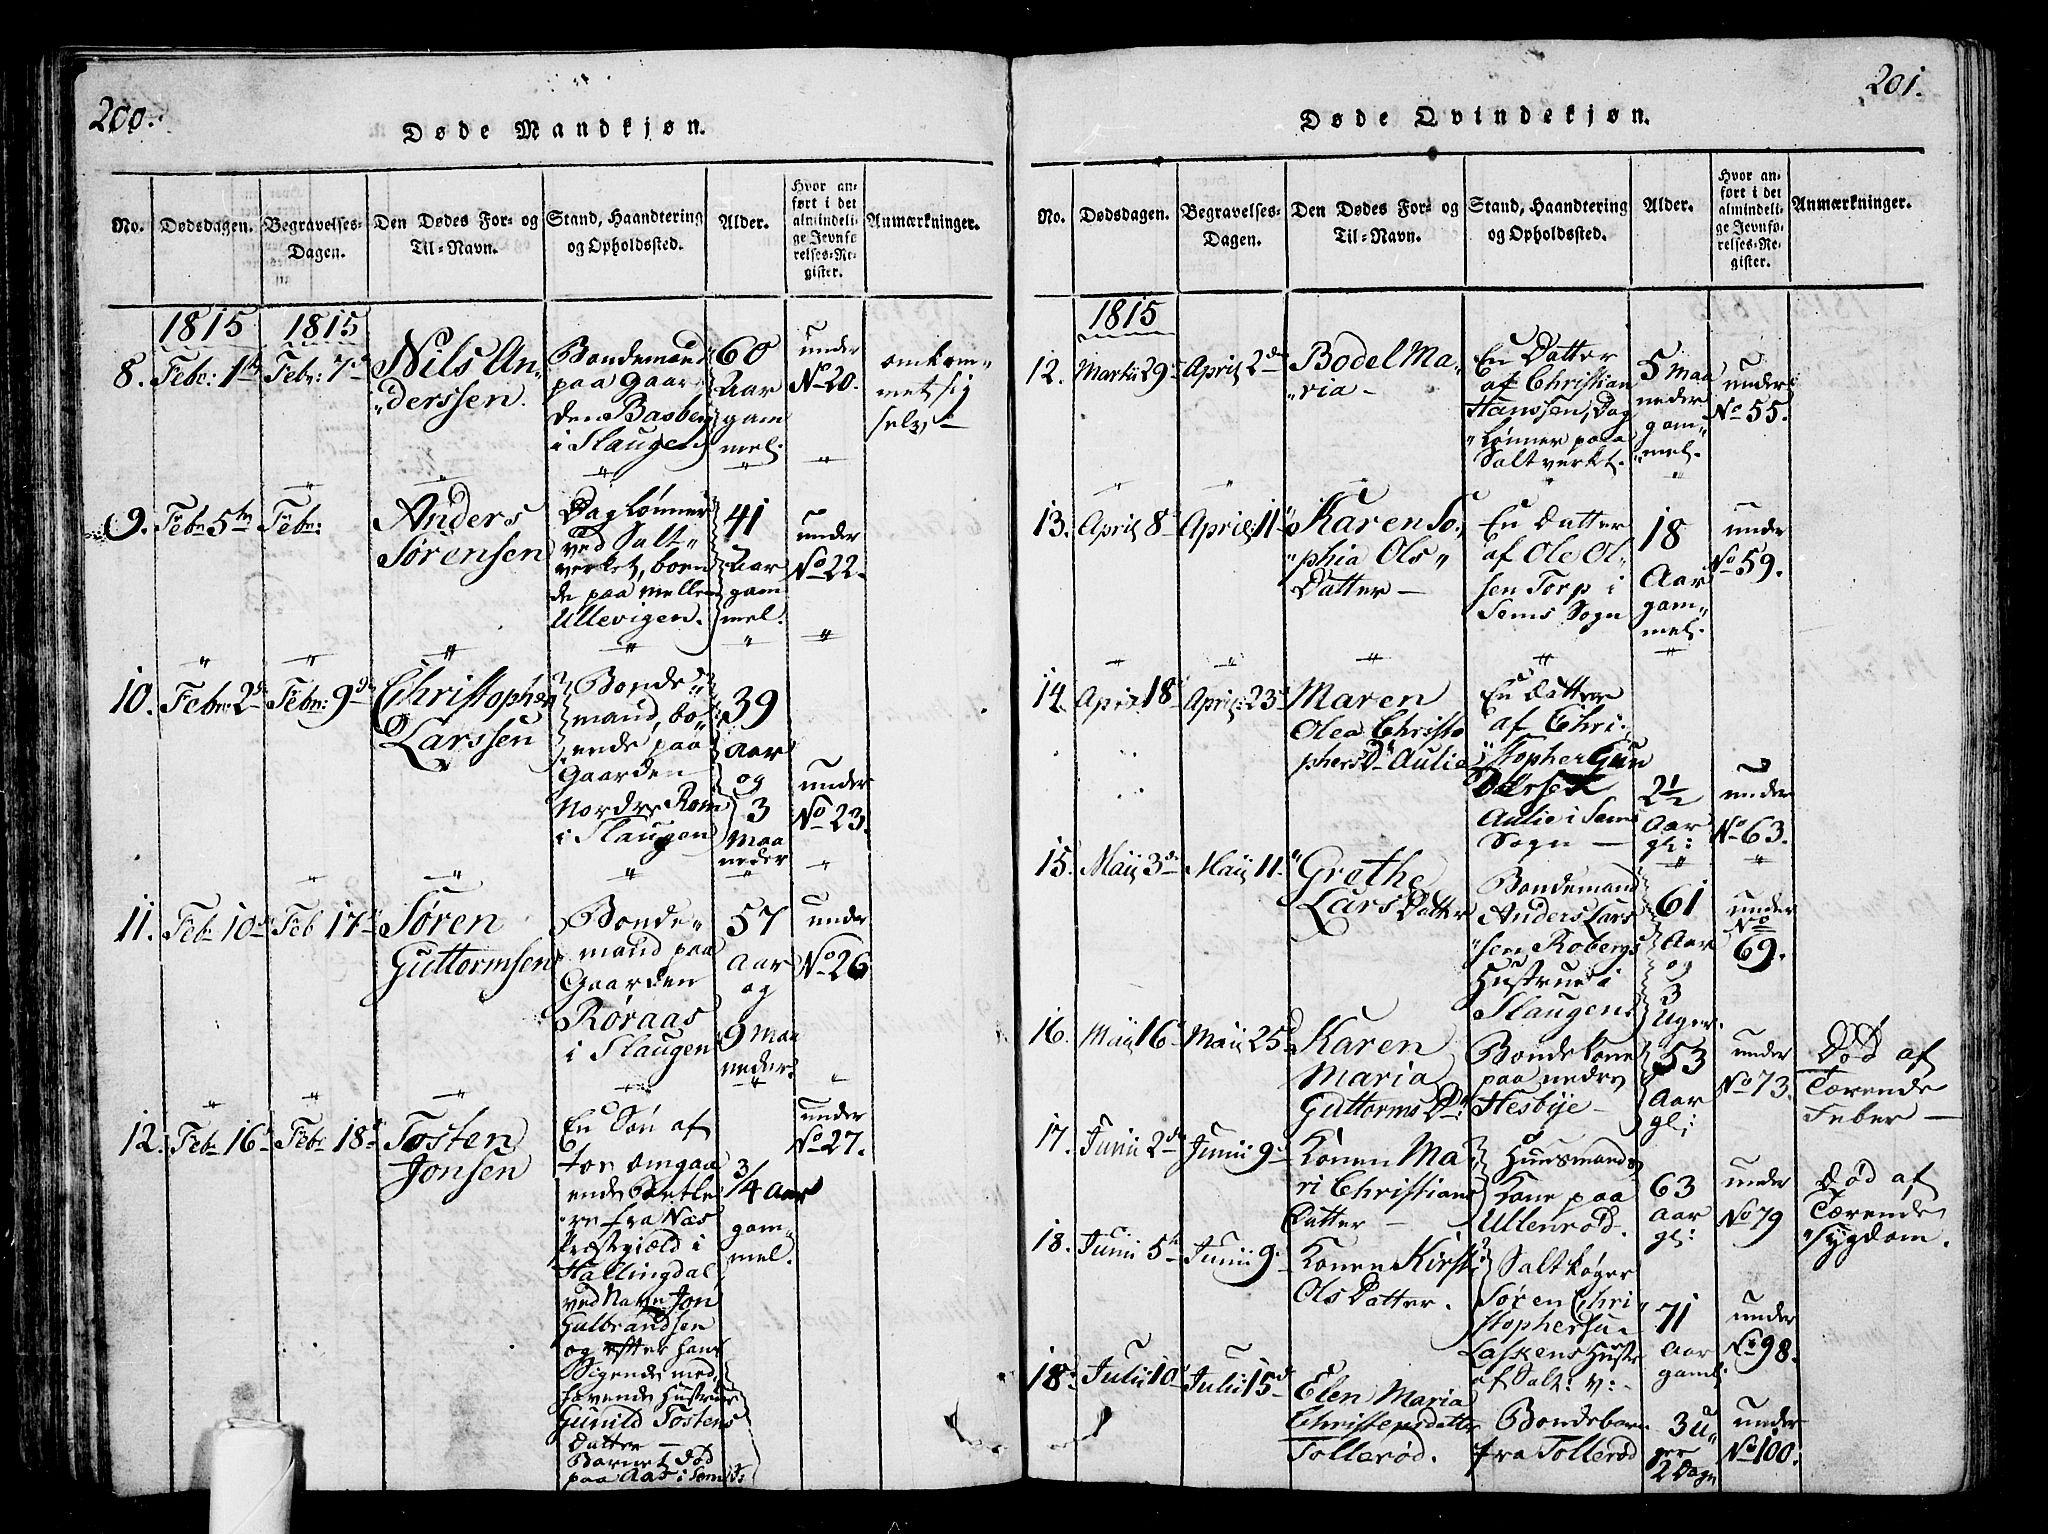 200.
Døde Mandkjøn.
No.
Dødsdagen.
Begravelses-
Dagen.
Den Dødes For- og
Til-Navn.
Stand, Haandtering
og Opholdssted.
Alder.
Hvor an-
ført i det
almindeli-
ge Jevnfø-
relses-Re-
gister.
Anmærkninger.
1815
1815
8.
Febr: 1ste
Febr: 7de
Nils An-
derssen.
Bondemand
paa Gaar
den Basberg
i Slaugen
60
Aar
gam
mel.
under
No 20.
omkom-
met sig
selv -
9.
Febr 5te
Febr:
Anders
Sørensen
Daglønner
ved Salt-
verket, boen
de paa mellem
Ullevigen.
41
Aar
gam
mel.
under
No 22.
10.
Febr: 2d
Febr: 9de
Christopher
Larssen
Bonde-
mand, bo-
ende paa
Gaarden
Nordre Rom
i Slaugen
39
Aar
og
3
Maa
neder
under
No 23.
11.
Feb: 10de
Feb 17de
Søren
Guttormsen
Bonde-
mand paa
Gaarden
Røraas
i Slaugen
57
Aar
og
9 Maa
neder.
under
No 26
12.
Feb: 16de
Feb: 18de
Tosten
Jonsen
En Søn af
for omgaa
ende Betle
re fra Næs
Præstegiæld i
Hallingdal,
ved Navn Jon
Gulbrandsen
og efter hans
Sigende med,
havende Hustrue
Gunild Tostens
Datter -
Barnet død
paa Aas i Sem S:
3/4 Aar
gam-
mel.
under
No 27.
201.
Døde Qvindekjøn.
No.
Dødsdagen.
Begravelses-
Dagen.
Den Dødes For- og
Til-Navn.
Stand, Haandtering
og Opholdssted.
Alder.
Hvor an-
ført i det
almindeli-
ge Jevnfø-
relses-Re-
gister.
Anmærkninger.
1815
12.
Martii 29
April 2den
Bodel Ma-
ria -
En Datter
af Christian
Hanssen, Dag
lønner paa
Saltverkt.
5 Maa
neder
gam-
mel.
under
No 55.
13.
April 8de
April 11te
Karen So-
phia Ols-
Datter -
En Datter
af Ole Ol-
sen Torp i
Sems Sogn
18
Aar
gam-
mel.
under
No 59.
14.
April 18
April 23
Maren
Olea Christo
phers D: Aulie
En Datter
af Chri-
stopher Gun
dersen
Aulie i Sems
Sogn -
2½
Aar
gl:
under
No 63.
15.
Maij 3de
Maij 11te
Grethe
Lars Datter
Bondemand
Anders Lars
sen Robergs
Hustrue i
Slaugen
61
Aar
og
3
Uger.
under
No
69.
16.
Maij 16
Maij 25d
Karen
Maria
Guttorms D:
Bondekone
paa nedre
Hesbÿe -
53
Aar
gl:
under
No 73.
Død af
Tærende
Feber -
17.
Junii 2de
Junii 9de
Konen Ma
ri Christians
Datter -
Huusmands
Kone paa
Ullenrød.
63
Aar
gl:
under
No 79
Død af
Tærende
sygdom.
18.
Junii 5te
Junii 9.
Konen Kirsti
Ols Datter.
Saltkoger
Søren Chri-
stophersen
Laskens Hustr
af Salt: v:
71
Aar
gaml.
under
No 98.
18.
Julii 10
Julii 15d
Elen Maria
Christensdatter
Tollerød.
Bondebarn
fra Tollerød
3 U-
ger
2 Dage
under
No 100.